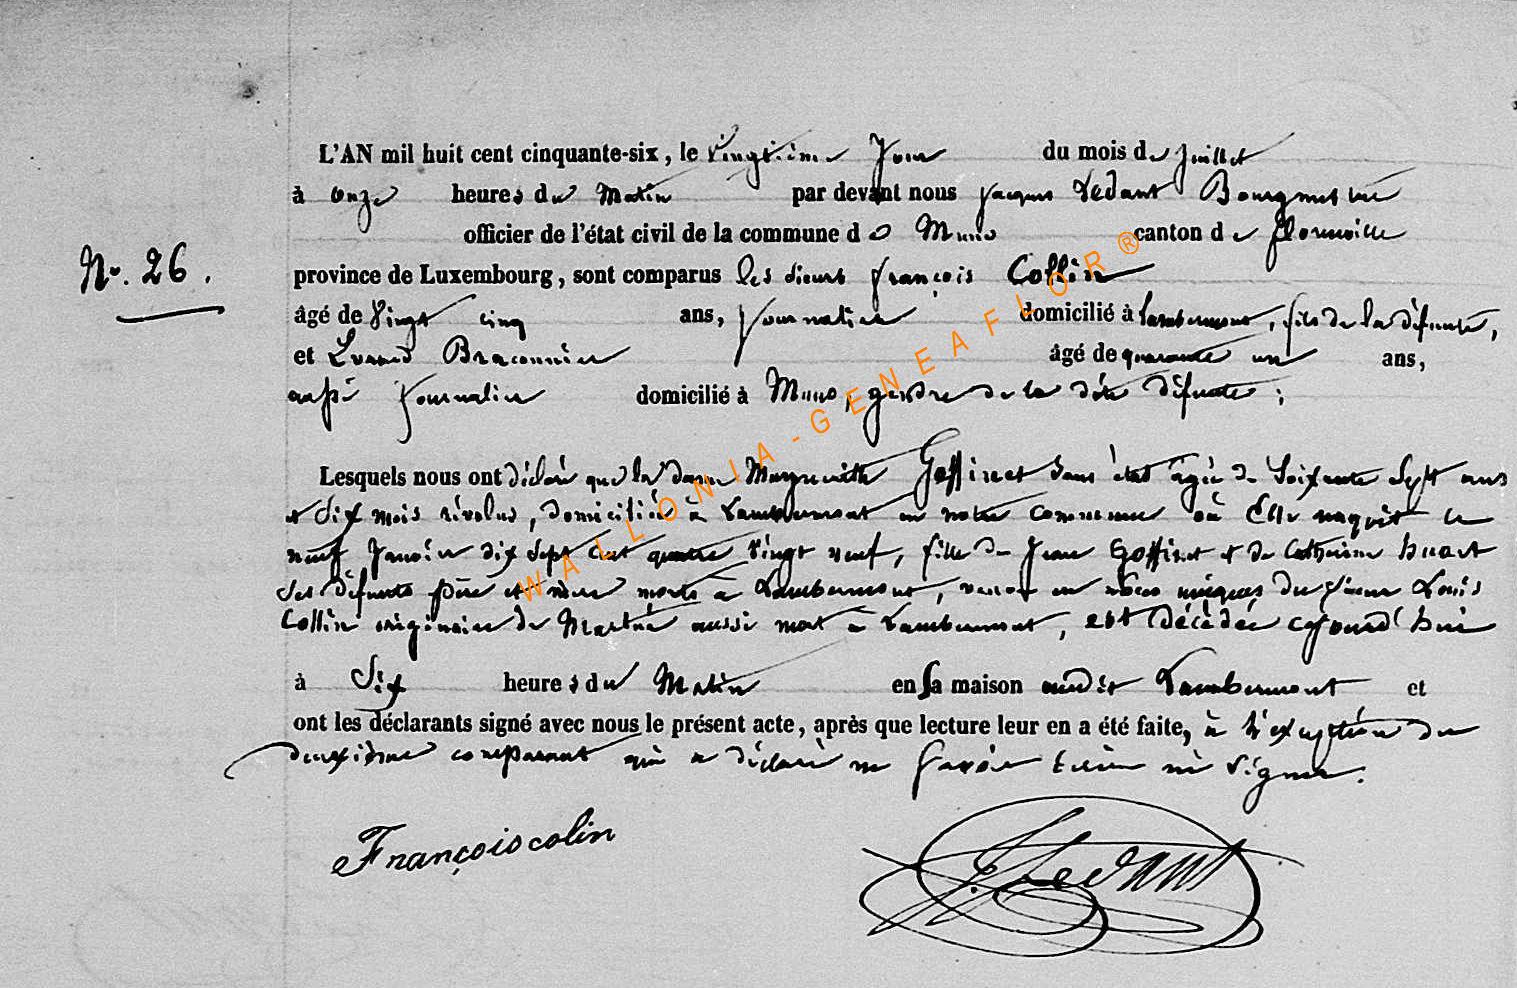 L'AN mil huit cent cinquante-six, le vingtième Jour du mois de juillet
à onze heures du Matin par devant nous Jacques Ledant Bourgmestre
officier de l'état civil de la commune de Muno canton de florenville
N°. 26.
province de Luxembourg, sont comparus les sieurs françois Collin
âgé de Vingt cinq ans, journalier domicilié à Lambermont, fils de la défunte,
et Evrard Braconnier âgé de quarante un ans,
aussi journalier domicilié à Muno, gendre de la dite défunte;
Lesquels nous ont déclaré que la dame Marguerite Goffinet sans état agée de Soixante Sept ans
et Six mois révolus, domiciliée à Lambermont en notre commune où Elle naquit le
neuf Janvier dix sept cent quatre vingt neuf, fille de Jean Goffinet et de Catherine huart
ses défunts père et mère morts à Lambermont, veuve en noces uniques du sieur Louis
Collin originaire de aussi mort à Lambermont, est décédée cejourd'hui
à Six heures du Matin en sa maison audit Lambermont et
ont les déclarants signé avec nous le présent acte, après que lecture leur en a été faite, à l'exception du
deuxième comparant qui a déclaré ne savoir Ecrire ni signer.
François colin
J. Ledant
WALLONIA-GENEAFLOR®